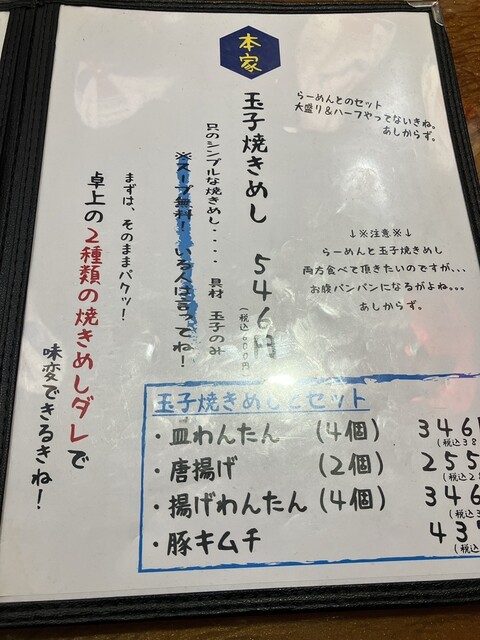 本家
らーめんとのセット
大盛り&ハーフやってないきね。
あしからず。
玉子焼きめし 546円
(税込600円)
只のシンプルな焼きめし‥‥ 具材 玉子のみ
※スープ無料!いる人は言ってね!
まずは、そのままパクッ!
卓上の2種類の焼きめしダレで
味変できるきね!
↓※注意※↓
らーめんと玉子焼きめし
両方食べて頂きたいのですが、、、
お腹パンパンになるがよね。。。
あしからず。
玉子焼きめしとセット
・皿わんたん (4個) 346
(税込38
・唐揚げ (2個) 255
(税込2
・揚げわんたん (4個) 346
(税込3
・豚キムチ 437
(税込